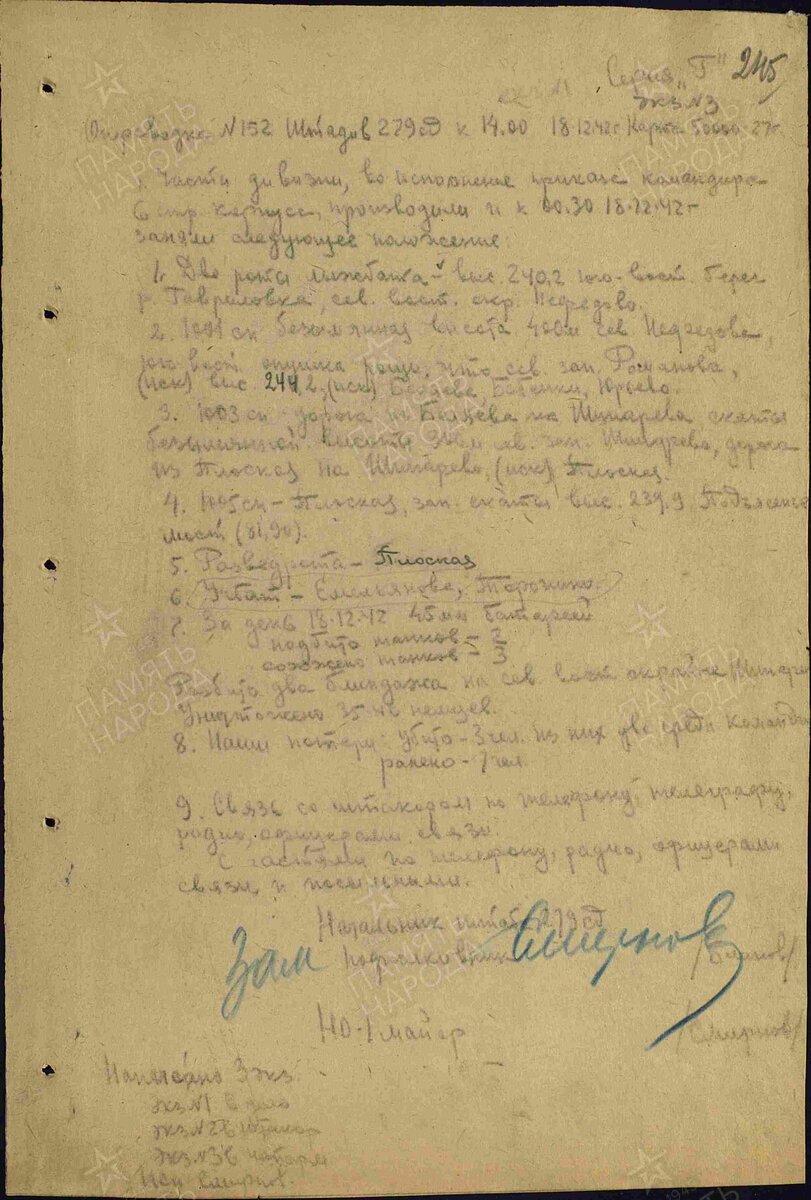 Серия "Г" 245
экз. №1 экз. №3
Оперсводка №152 Штадив 279 сд к 14.00 18.12.42г. Карта 50000-27г.
Части дивизии, во исполнение приказа командира
6 стр. корпуса, производили и к 00.30 18.12.42г
заняли следующее положение:
1. Две роты лыжбата - выс. 240,2 юго-вост. берег
р. Гавриловка, сев. вост. окр. Нефедово.
2. 1001 сп безымянная высота 400м сев. Нефедова,
юго-вост. опушка рощи, что сев. зап. Романова,
(иск) выс. 244,2, (иск) Бобенки, Юрьево.
3. 1003 сп - дорога из на Шипарево скаты
безымянной высоты сев. зап. Шипарево, дорога
из Плоская на Шипарево, (иск) Плоская.
4. 1005 сп - Плоская, зап. скаты выс. 239.9,
мост (81,90).
5. Разведрота - Плоская
6. Учбат - Емельянова, Торожино.
7. За день 18.12.42 45мм батареей
подбито танков - 2
сожжено танков - 3
Разбито два блиндажа на сев. вост. окраине
Уничтожено 35-40 немцев.
8. Наши потери: убито - 3 чел. из них два сред. команди
ранено - 7 чел.
9. Связь со штакором по телефону, телеграфу,
радио, офицерами связи.
С частями по телефону, радио, офицерами
связи и посыльными.
Начальник штаба 279 сд
Зам подполковник Смирнов
НО-1 майор /Смирнов/
Написано 3 экз.
экз №1 в дело
экз. №2 в штакор
экз. №3 в
Исп. Смирнов.
ПАМЯТЬ НАРОДА